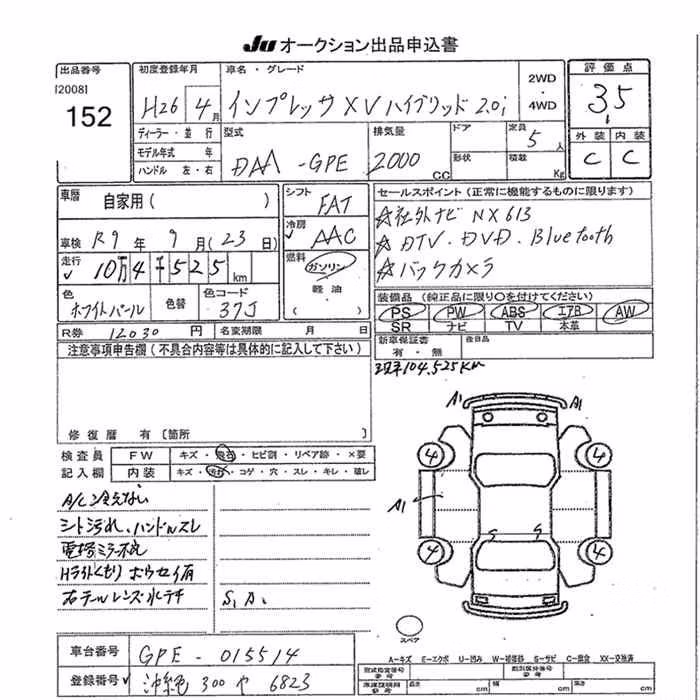 JU オークション出品申込書
出品番号
[2008]
152
初度登録年月
H26 4月
ディーラー・並行
モデル年式 年
ハンドル 左・右
車名・グレード
インプレッサXVハイブリッド2.0i
2WD
4WD
型式
DAA-GPE
排気量
2000 CC
ドア
形状
定員
5人
積載
Kg
評価点
3.5
外装 内装
C C
車暦
自家用( )
車検 R9年 9月(23日)
走行
10万4千525km
色
ホワイトパール
色替
色コード
37J
シフト
FAT
冷房
AAC
燃料
ガソリン
軽油
( )
R券 12030円 名変期限 月 日
セールスポイント(正常に機能するものに限ります)
☆社外ナビ NX613
☆DTV.DVD.Bluetooth
☆バックカメラ
装備品(純正品に限り○を付けてください)
PS PW ABS エアB AW
SR ナビ TV 本革
新車保証書
有・無
後日品
104,525Km
注意事項申告欄(不具合内容等は具体的に記入して下さい)
修復暦 有〔箇所
検査員
記入欄
FW キズ・飛石・ヒビ割・リペア跡・×要
内装 キズ・汚れ・コゲ・穴・スレ・キレ・破レ
A/C冷えない
シート汚れ、ハンドルスレ
電格ミラー不良
Hライトくもり ホウセイ有
右テールレンズ水テキ
S.A.
A1 A1
4 4
A1
S S
4 4
スペア
車台番号 GPE-015514
登録番号 沖縄 300 や 6823
A-キズ E-エクボ U-凹み W-補修跡 S-サビ C-腐食 XX-交換済
型式指定番号
参考
類別区分番号
参考
車庫証明用
参考
長さ cm 幅 cm 高さ cm